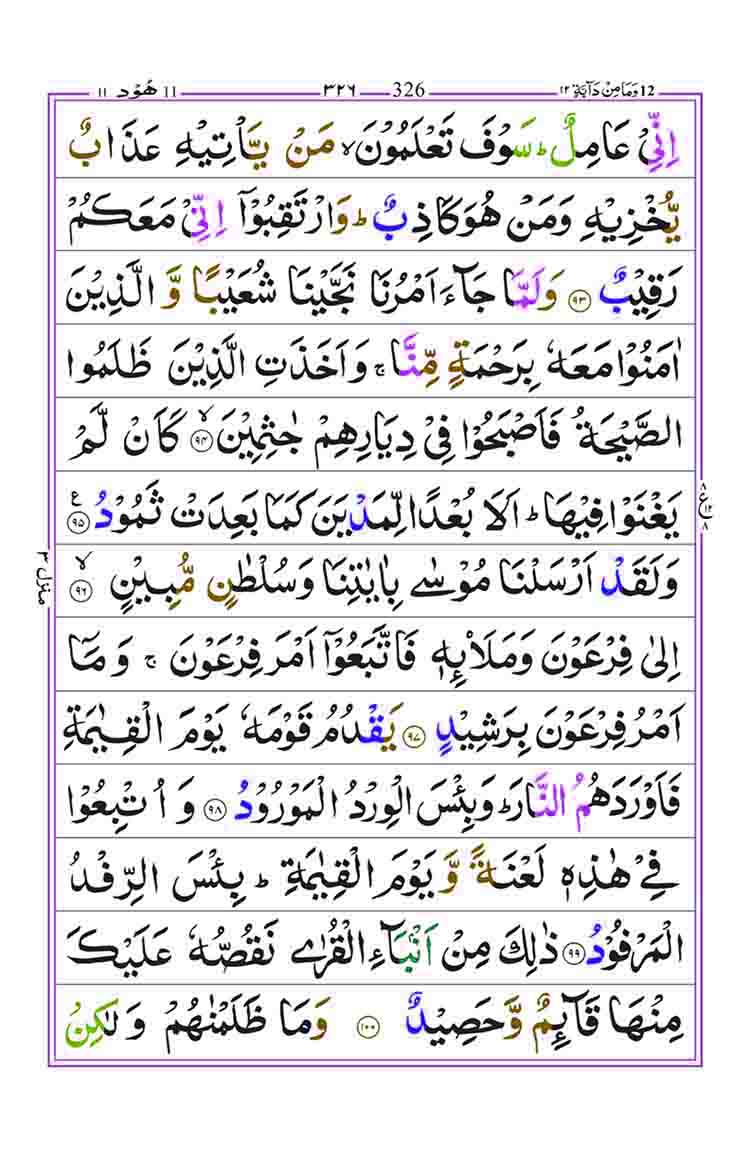 12 وَمَا مِنْ دَآبَّةٍ ۱۲ 326 ۳۲٦ 11 هُوْد ۱۱
اِنِّىْ عَامِلٌ ؕ سَوْفَ تَعْلَمُوْنَ ۙ مَنْ يَّاْتِيْهِ عَذَابٌ
يُّخْزِيْهِ وَمَنْ هُوَ كَاذِبٌ ؕ وَارْتَقِبُوْۤا اِنِّىْ مَعَكُمْ
رَقِيْبٌ ۹۳ وَلَمَّا جَآءَ اَمْرُنَا نَجَّيْنَا شُعَيْبًا وَّ الَّذِيْنَ
اٰمَنُوْا مَعَهٗ بِرَحْمَةٍ مِّنَّا ۚ وَاَخَذَتِ الَّذِيْنَ ظَلَمُوا
الصَّيْحَةُ فَاَصْبَحُوْا فِىْ دِيَارِهِمْ جٰثِمِيْنَ ۙ ۹۴ كَاَنْ لَّمْ
يَغْنَوْا فِيْهَا ؕ اَلَا بُعْدًا لِّمَدْيَنَ كَمَا بَعِدَتْ ثَمُوْدُ ۹۵ ع
وَلَقَدْ اَرْسَلْنَا مُوْسٰى بِاٰيٰتِنَا وَسُلْطٰنٍ مُّبِيْنٍ ۙ ۹٦
اِلٰى فِرْعَوْنَ وَمَلَا۟ئِهٖ فَاتَّبَعُوْۤا اَمْرَ فِرْعَوْنَ ۚ وَ مَاۤ
اَمْرُ فِرْعَوْنَ بِرَشِيْدٍ ۹۷ يَقْدُمُ قَوْمَهٗ يَوْمَ الْقِيٰمَةِ
فَاَوْرَدَهُمُ النَّارَ ؕ وَبِئْسَ الْوِرْدُ الْمَوْرُوْدُ ۹۸ وَ اُتْبِعُوْا
فِىْ هٰذِهٖ لَعْنَةً وَّ يَوْمَ الْقِيٰمَةِ ؕ بِئْسَ الرِّفْدُ
الْمَرْفُوْدُ ۹۹ ذٰلِكَ مِنْ اَنْۢبَآءِ الْقُرٰى نَقُصُّهٗ عَلَيْكَ
مِنْهَا قَآئِمٌ وَّ حَصِيْدٌ ۱۰۰ وَمَا ظَلَمْنٰهُمْ وَ لٰكِنْ
منزل ۳